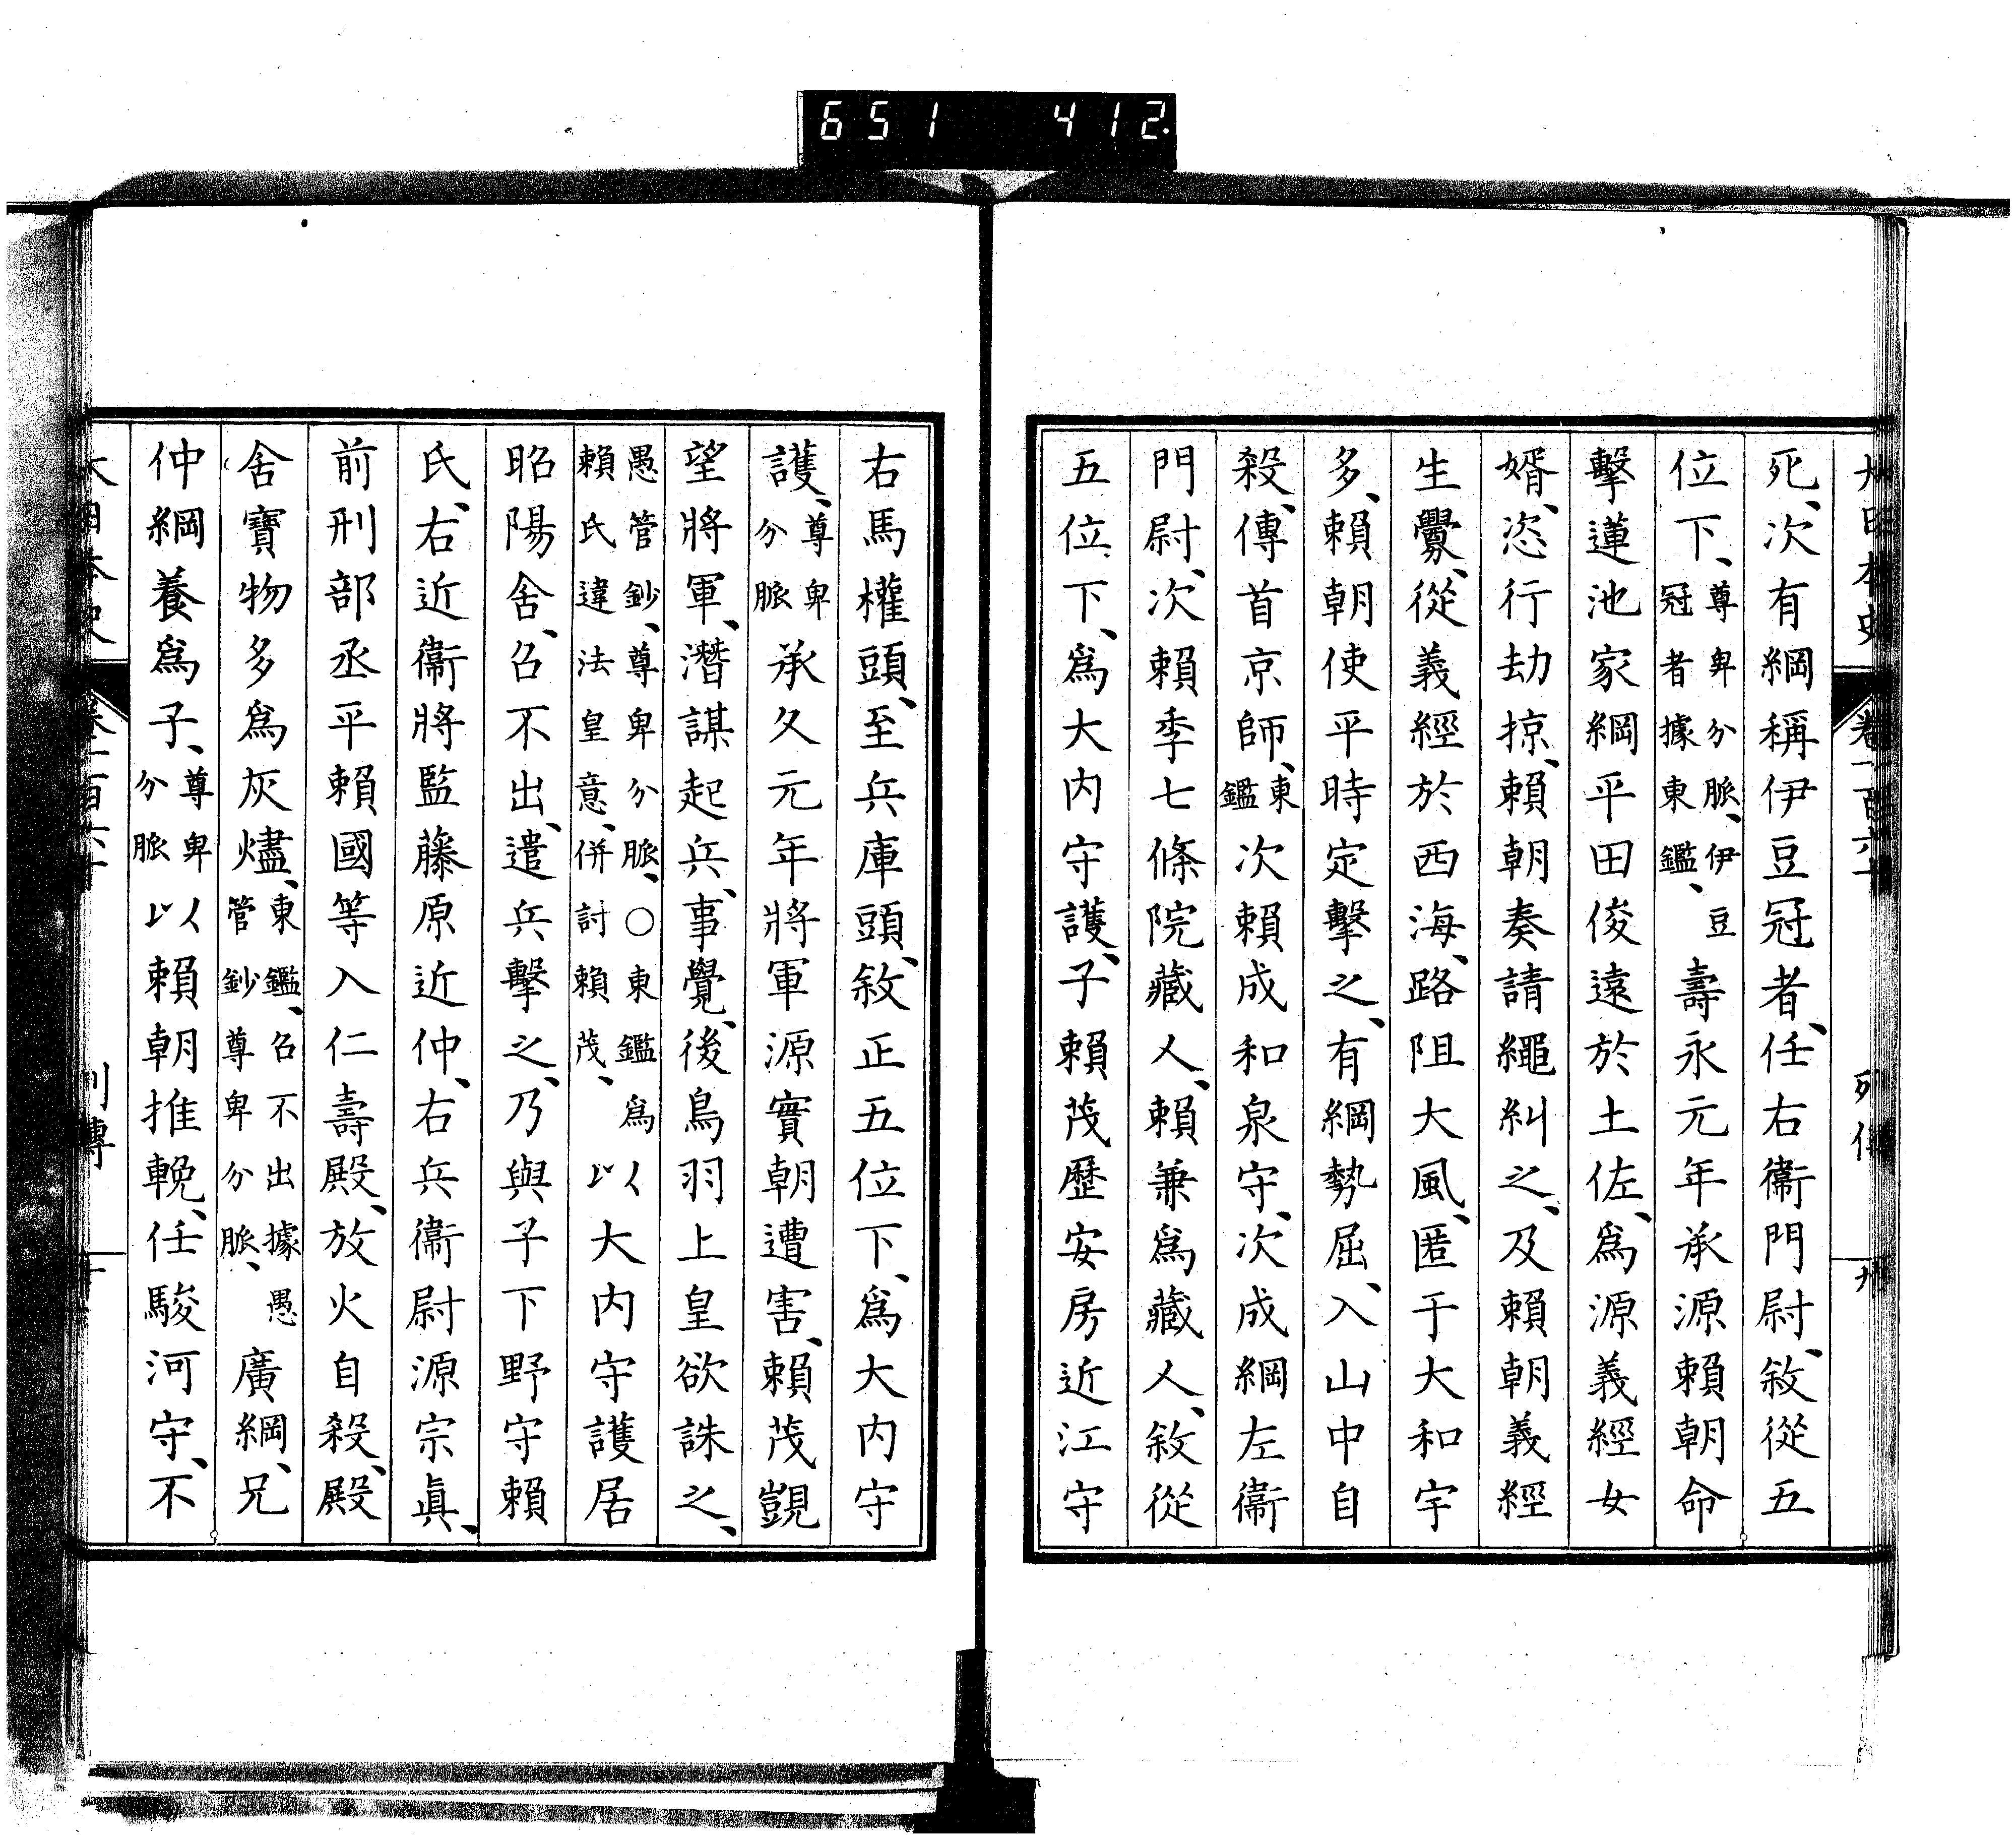 651 412.
大日本史 卷一百六十 列傳 九
死、次有綱稱伊豆冠者、任右衞門尉、敘從五
位下、尊卑分脈、伊豆冠者據東鑑、壽永元年承源賴朝命
擊蓮池家綱平田俊遠於土佐、爲源義經女
婿、恣行劫掠、賴朝奏請繩糾之、及賴朝義經
生釁、從義經於西海、路阻大風、匿于大和宇
多、賴朝使平時定擊之、有綱勢屈、入山中自
殺、傳首京師、東鑑次賴成和泉守、次成綱左衞
門尉、次賴季七條院藏人、賴兼爲藏人、敘從
五位下、爲大內守護、子賴茂歷安房近江守
右馬權頭、至兵庫頭、敘正五位下、爲大內守
護、尊卑分脈承久元年將軍源實朝遭害、賴茂覬
望將軍、潛謀起兵、事覺、後鳥羽上皇欲誅之、
愚管鈔、尊卑分脈、〇東鑑爲賴氏違法皇意、併討賴茂、以大內守護居
昭陽舍、召不出、遣兵擊之、乃與子下野守賴
氏、右近衞將監藤原近仲、右兵衞尉源宗眞、
前刑部丞平賴國等入仁壽殿、放火自殺、殿
舍寶物多爲灰燼、東鑑、召不出據愚管鈔尊卑分脈、廣綱、兄
仲綱養爲子、尊卑分脈以賴朝推輓、任駿河守、不
大日本史 卷一百六十 列傳 十